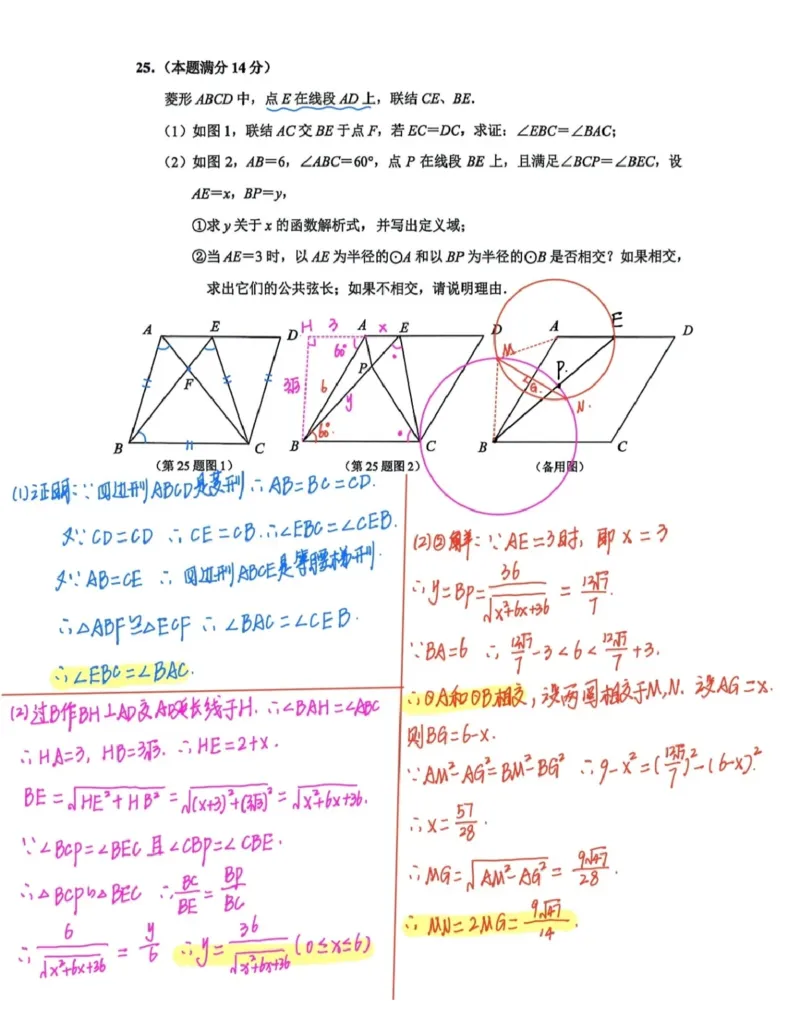 25.（本题满分 14 分）
菱形 ABCD 中，点 E 在线段 AD 上，联结 CE、BE.
（1）如图 1，联结 AC 交 BE 于点 F，若 EC＝DC，求证：∠EBC＝∠BAC；
（2）如图 2，AB＝6，∠ABC＝60°，点 P 在线段 BE 上，且满足∠BCP＝∠BEC，设
AE＝x，BP＝y，
①求 y 关于 x 的函数解析式，并写出定义域；
②当 AE＝3 时，以 AE 为半径的⊙A 和以 BP 为半径的⊙B 是否相交？如果相交，
求出它们的公共弦长；如果不相交，请说明理由.
A E D
F
B C
（第 25 题图 1）
H 3 A x E D
60°
P
3√3 6 y
60°
B C
（第 25 题图 2）
A E D
M P
G N
B C
（备用图）
(1)证明：∵四边形ABCD是菱形 ∴AB=BC=CD.
又∵CD=CD ∴CE=CB.∴∠EBC=∠CEB.
又∵AB=CE ∴四边形ABCE是等腰梯形.
∴△ABF≌△ECF ∴∠BAC=∠CEB.
∴∠EBC=∠BAC.
(2)过B作BH⊥AD交AD延长线于H.∴∠BAH=∠ABC
∴HA=3, HB=3√3. ∴HE=2+x.
BE=√(HE²+HB²)=√((x+3)²+(3√3)²)=√(x²+6x+36).
∵∠BCP=∠BEC 且∠CBP=∠CBE.
∴△BCP∽△BEC ∴BC/BE=BP/BC
∴6/√(x²+6x+36)=y/6 ∴y=36/√(x²+6x+36) (0≤x≤6)
(2)②解：∵AE=3时，即x=3
∴y=BP=36/√(x²+6x+36)=12√7/7.
∵BA=6 ∴12√7/7-3<6<12√7/7+3.
∴⊙A和⊙B相交，设两圆相交于M,N. 设AG=x.
则BG=6-x.
∵AM²-AG²=BM²-BG² ∴9-x²=(12√7/7)²-(6-x)².
∴x=57/28.
∴MG=√(AM²-AG²)=9√47/28.
∴MN=2MG=9√47/14.